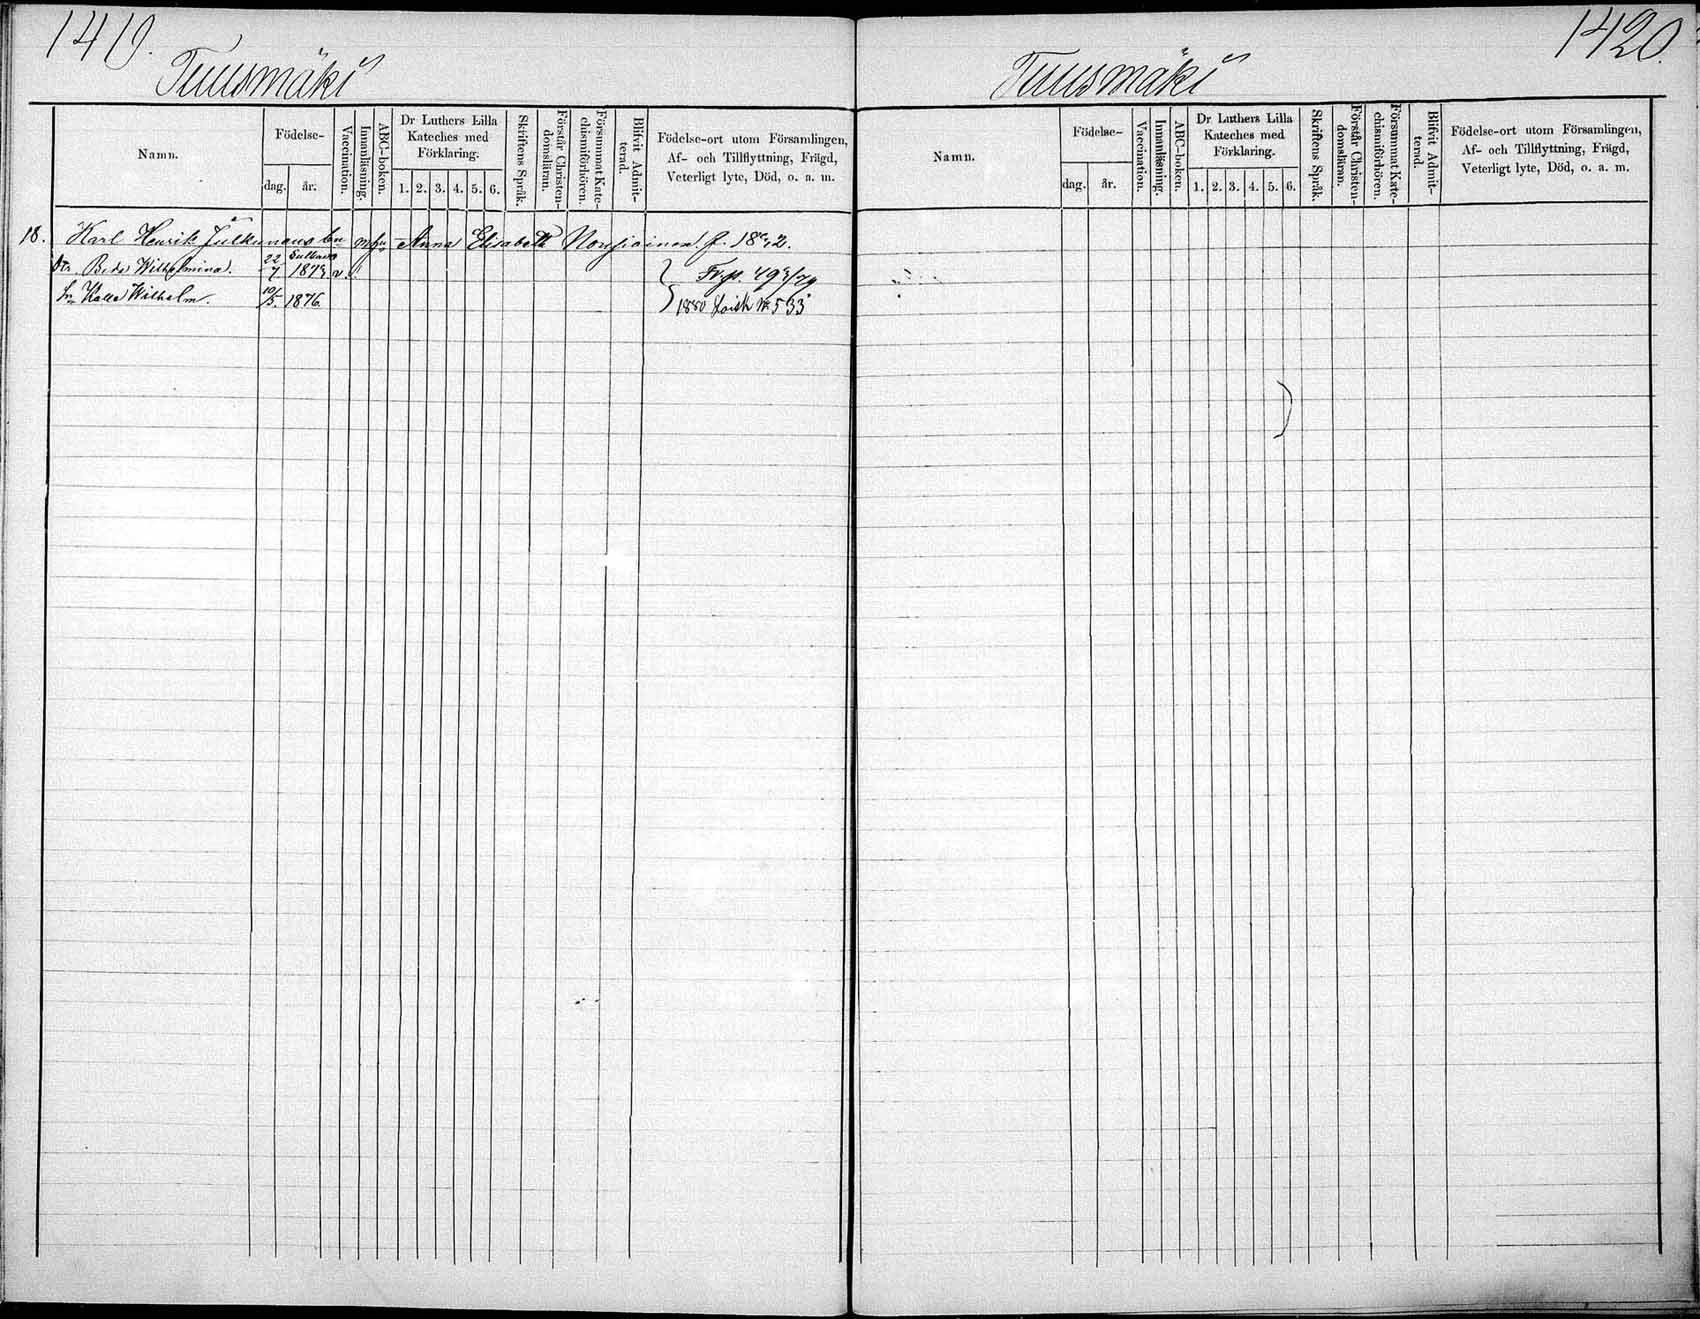 1419.
Tuusmäki
Namn.
Födelse-
dag.
år.
Vaccination.
Innanläsning.
ABC-boken.
Dr Luthers Lilla
Kateches med
Förklaring.
1. 2. 3. 4. 5. 6.
Skriftens Språk.
Förstår Christen-
domsläran.
Försummat Kate-
chismiförhören.
Blifvit Admit-
terad.
Födelse-ort utom Församlingen,
Af- och Tillflyttning, Frägd,
Veterligt lyte, Död, o. a. m.
18. Karl Henrik Julkunens Anna Elisabeth Nousiainen f.
Dtr. Beda Wilhelmina. 22/7 1873 v.
Sn Kalle Wilhelm. 10/5. 1876.
1880 533
1420.
Tuusmäki
Namn.
Födelse-
dag.
år.
Vaccination.
Innanläsning.
ABC-boken.
Dr Luthers Lilla
Kateches med
Förklaring.
1. 2. 3. 4. 5. 6.
Skriftens Språk.
Förstår Christen-
domsläran.
Försummat Kate-
chismiförhören.
Blifvit Admit-
terad.
Födelse-ort utom Församlingen,
Af- och Tillflyttning, Frägd,
Veterligt lyte, Död, o. a. m.